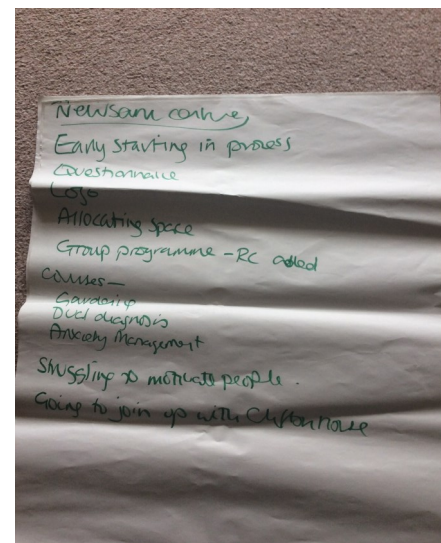 Newsam centre
Early starting in process
Questionnaire
Logo
Allocating space
Group programme - RC added
Courses -
Gardening
Dual diagnosis
Anxiety Management
Struggling to motivate people.
Going to join up with Clifton House